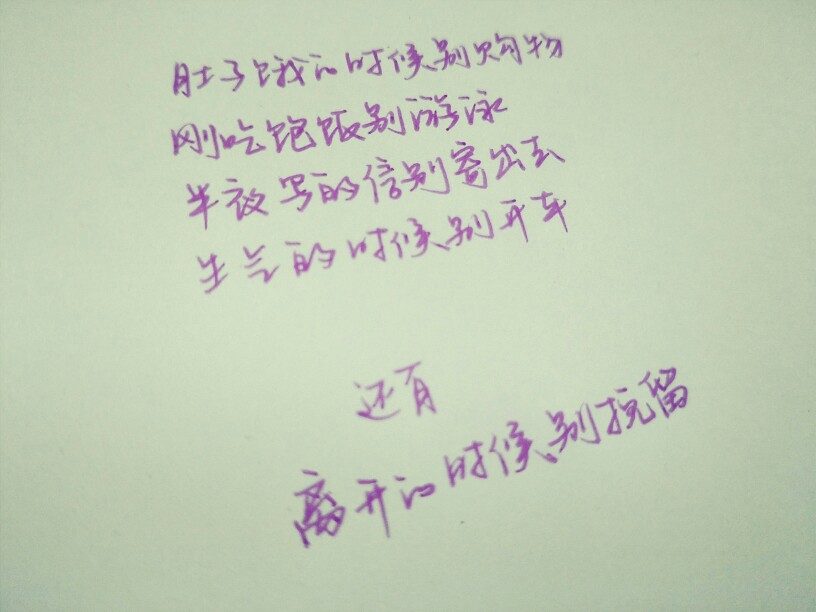 肚子饿的时候别购物
刚吃饱饭别游泳
半夜写的信别寄出去
生气的时候别开车
还有
离开的时候别挽留